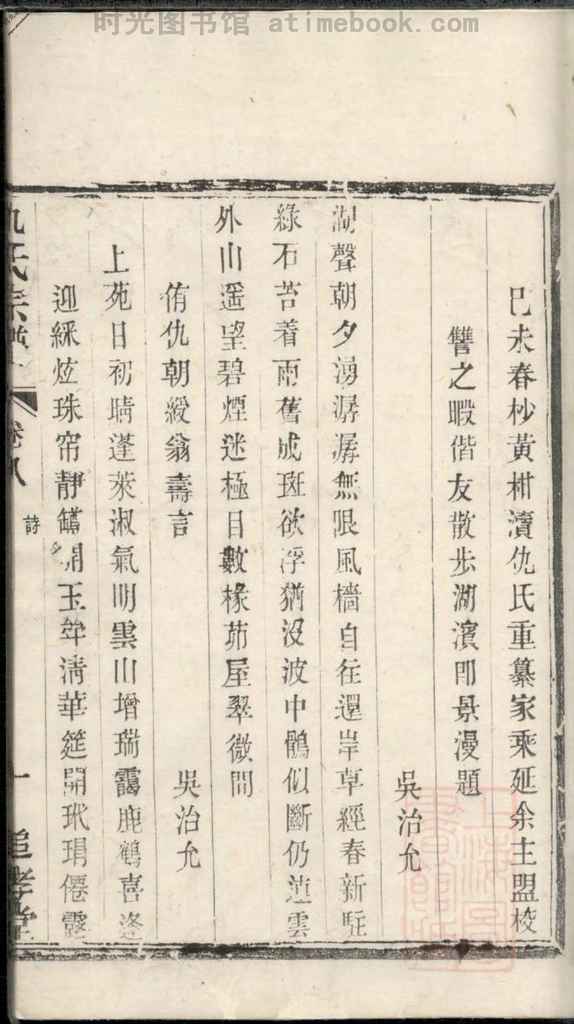 时光图书馆 atimebook.com
己未春杪黃柑瀆仇氏重纂家乘延余主盟校
讐之暇偕友散步湖濱即景漫題
吳治允
湖聲朝夕湧潺潺無限風檣自往還岸草經春新駐
綠石苔着雨舊成斑欲浮猶沒波中鶻似斷仍蓮雲
外山遥望碧煙迷極目數椽茆屋翠微間
侑仇朝綬翁壽言
吳治允
上苑日初晴蓬萊淑氣明雲山增瑞靄鹿鶴喜逢
迎綵炫珠帘靜開玉斝清華筵開玳瑁僊露
仇氏宗譜
卷八
詩
一
追孝堂